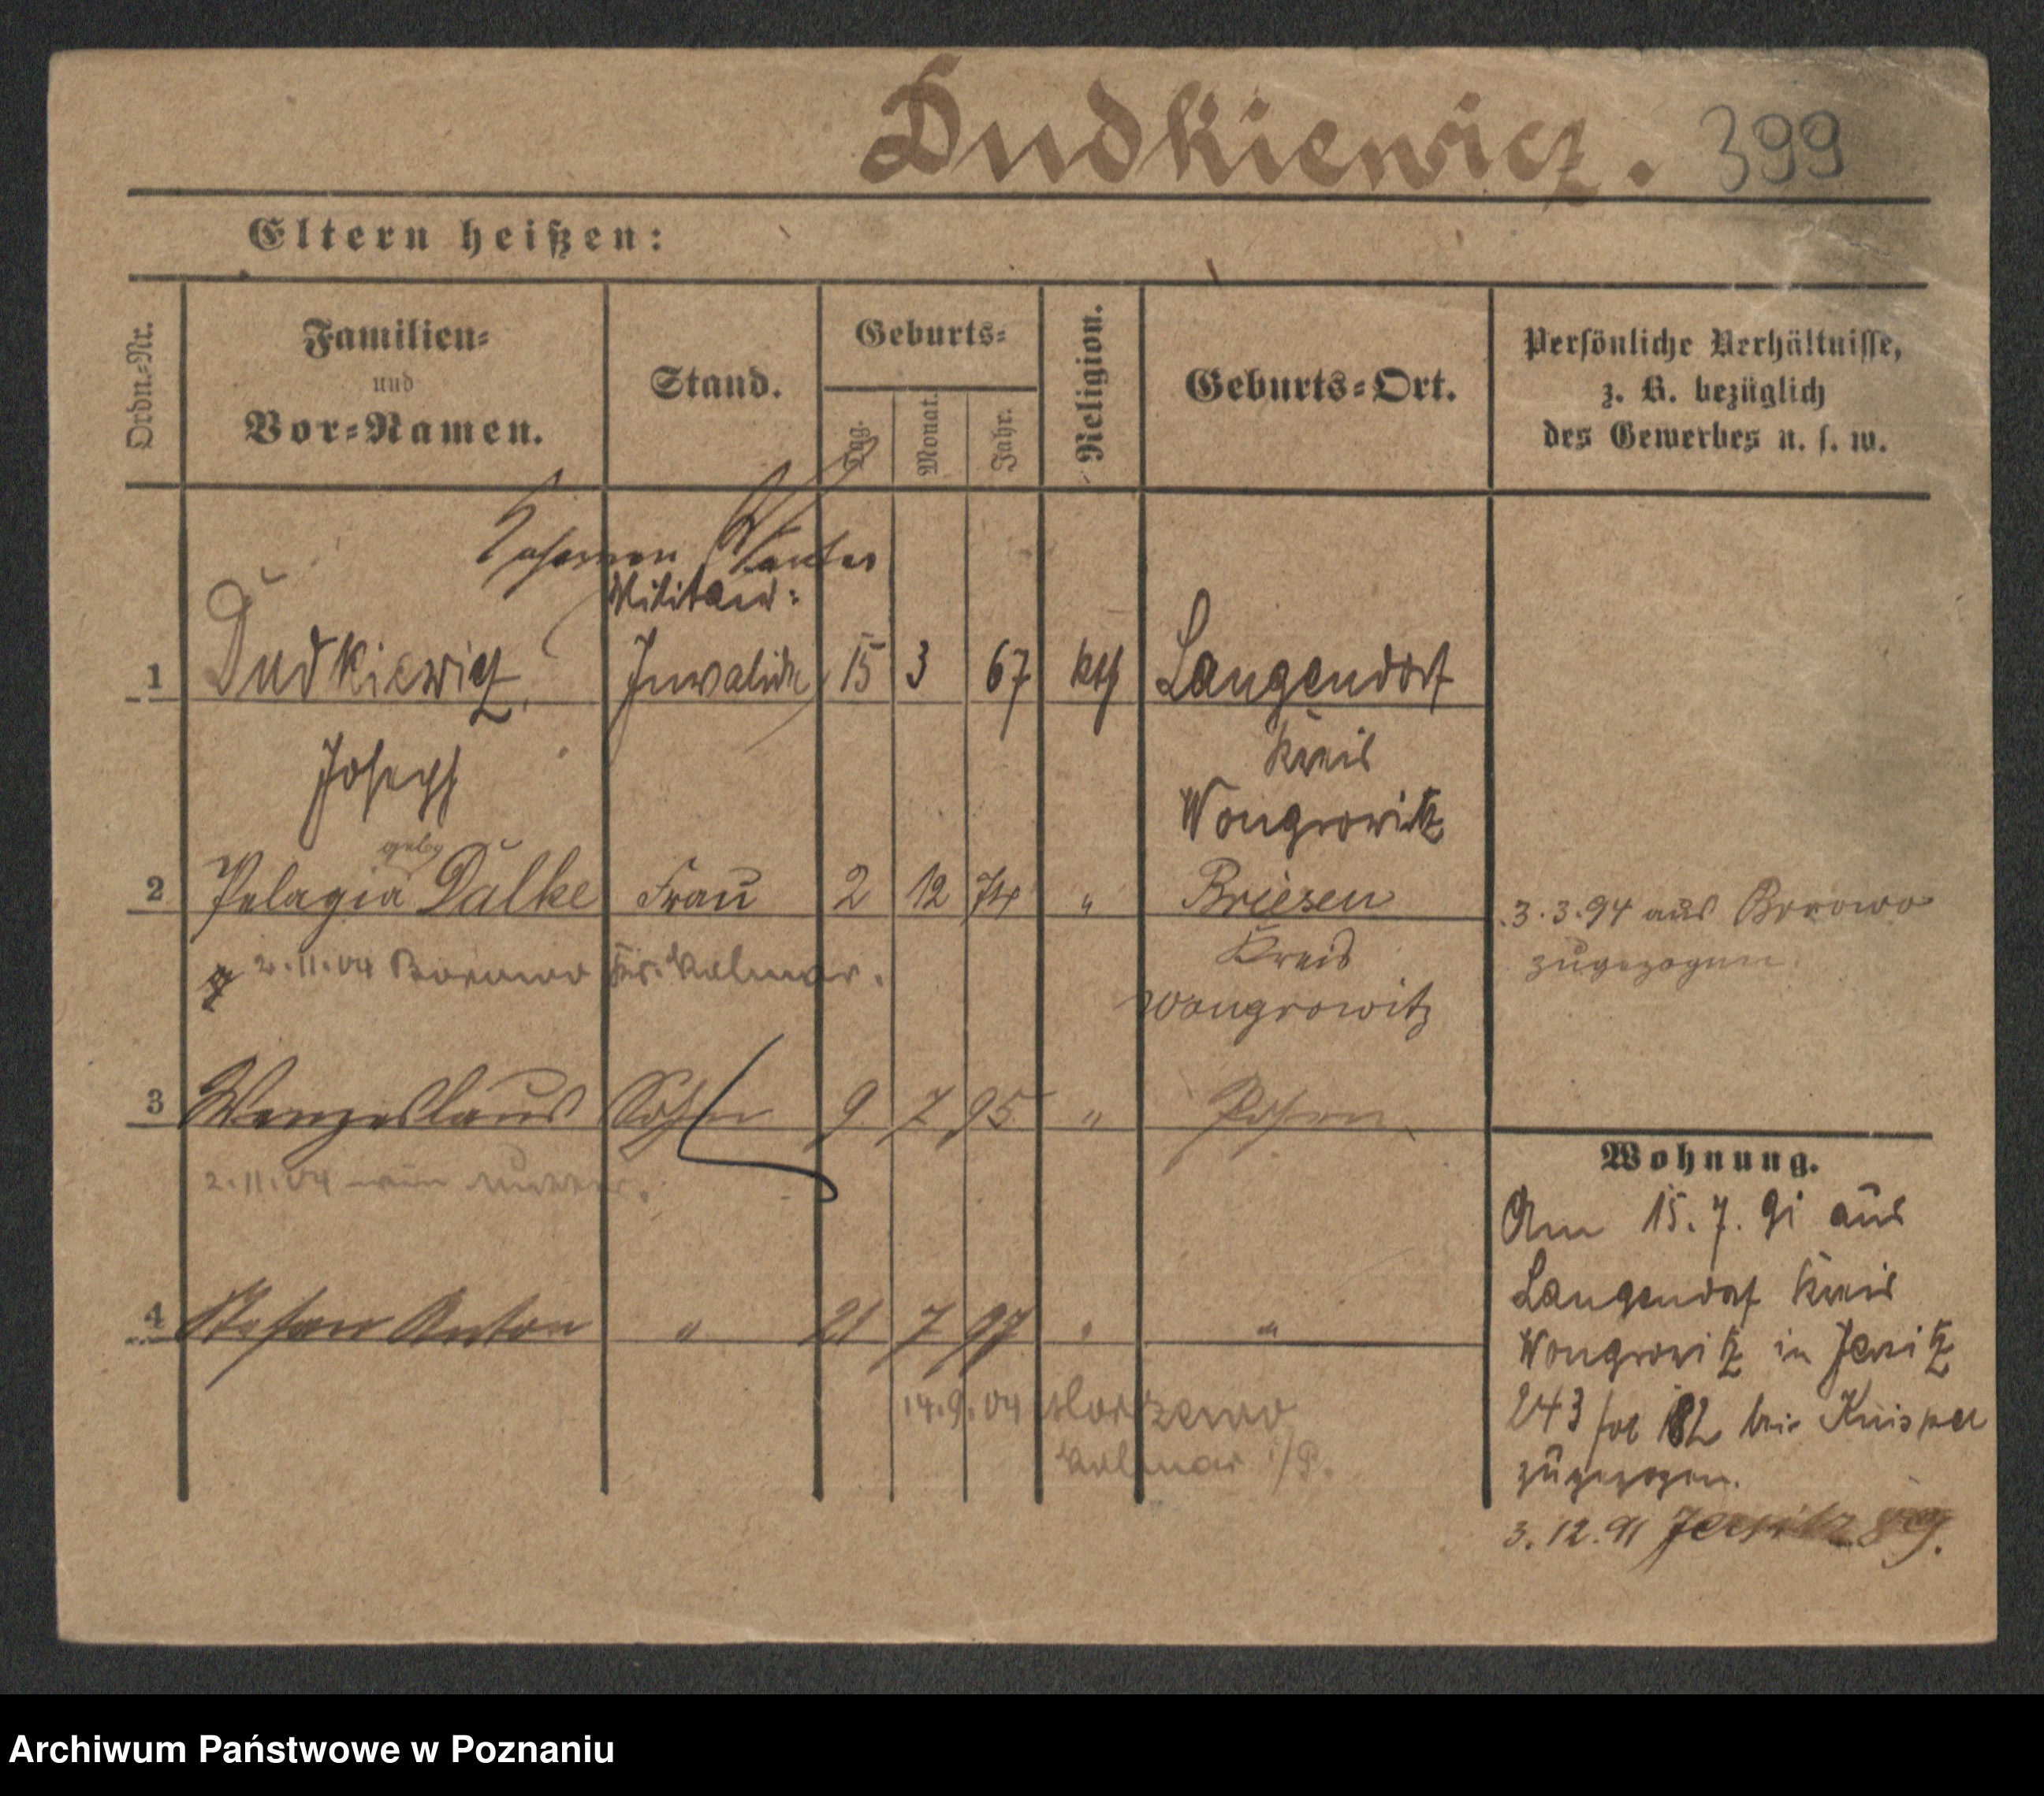 Dudkiewicz. 399
Eltern heißen:
Ordn.-Nr.
Familien-
und
Vor-Namen.
Stand.
Geburts-
Tag.
Monat.
Jahr.
Religion.
Geburts-Ort.
Persönliche Verhältnisse,
z. B. bezüglich
des Gewerbes u. s. w.
Militair-
1 Dudkiewicz, Invalide 15 3 67 kth Langendorf
Joseph Kreis
Wongrowitz
geb
2 Pelagia Dalke Frau 2 12 74 " Briesen
3.3.94 aus Borowo
zugezogen.
2.11.04 Borowo Kr. Kolmar. Kreis
Wongrowitz
3 Wenzeslaus Sohn 9 7 95 " Posen
2.11.04
4 Stefan Anton " 21 7 97 " "
14.9.04
Kolmar i/P.
Wohnung.
Am 15.7.91 aus
Langendorf Kreis
Wongrowitz in Jersitz
243 bei
zugezogen.
3.12.91 Jersitz
Archiwum Państwowe w Poznaniu